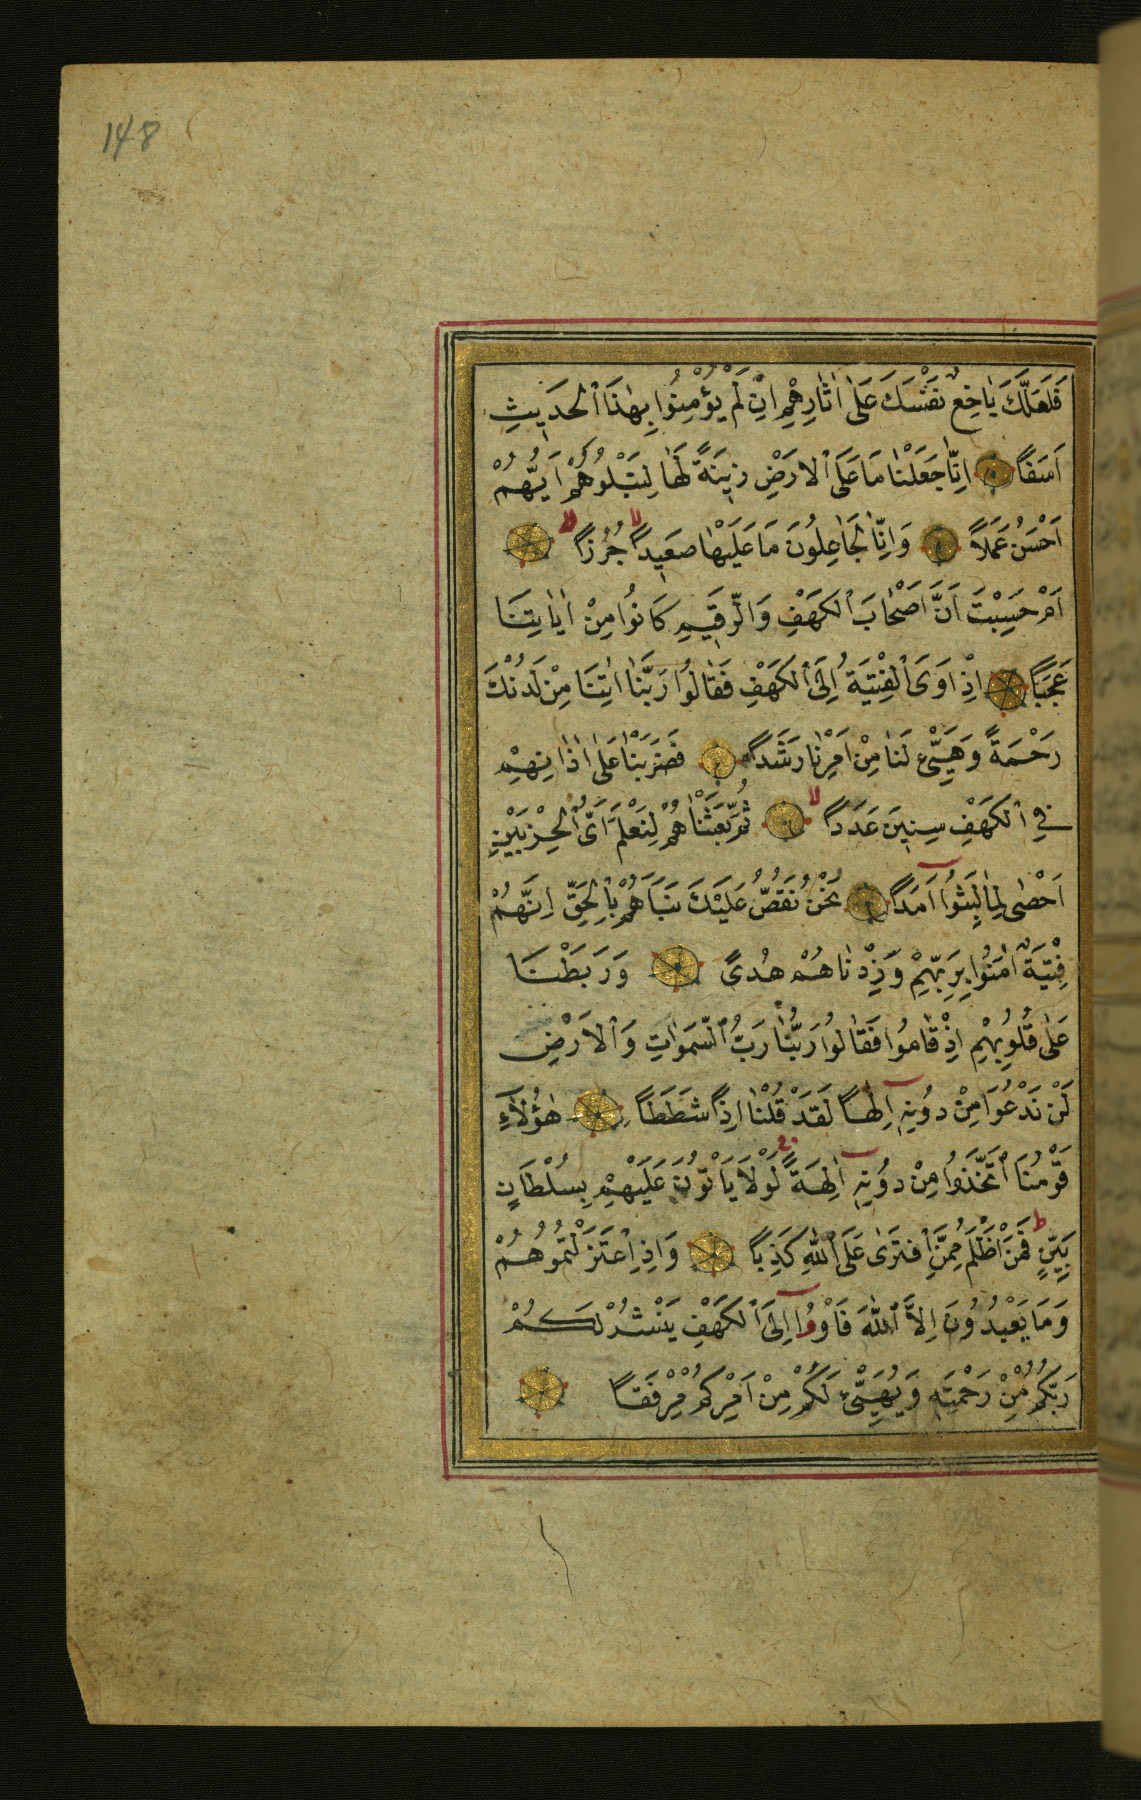 148
فَلَعَلَّكَ بَاخِعٌ نَفْسَكَ عَلٰى اٰثَارِهِمْ اِنْ لَمْ يُؤْمِنُوا بِهٰذَا الْحَدِيثِ
اَسَفًا اِنَّا جَعَلْنَا مَا عَلَى الْاَرْضِ زِينَةً لَهَا لِنَبْلُوَهُمْ اَيُّهُمْ
اَحْسَنُ عَمَلًا وَاِنَّا لَجَاعِلُونَ مَا عَلَيْهَا صَعِيدًا جُرُزًا
اَمْ حَسِبْتَ اَنَّ اَصْحَابَ الْكَهْفِ وَالرَّقِيمِ كَانُوا مِنْ اٰيَاتِنَا
عَجَبًا اِذْ اَوَى الْفِتْيَةُ اِلَى الْكَهْفِ فَقَالُوا رَبَّنَا اٰتِنَا مِنْ لَدُنْكَ
رَحْمَةً وَهَيِّئْ لَنَا مِنْ اَمْرِنَا رَشَدًا فَضَرَبْنَا عَلٰى اٰذَانِهِمْ
فِي الْكَهْفِ سِنِينَ عَدَدًا ثُمَّ بَعَثْنَاهُمْ لِنَعْلَمَ اَيُّ الْحِزْبَيْنِ
اَحْصٰى لِمَا لَبِثُوا اَمَدًا نَحْنُ نَقُصُّ عَلَيْكَ نَبَاَهُمْ بِالْحَقِّ اِنَّهُمْ
فِتْيَةٌ اٰمَنُوا بِرَبِّهِمْ وَزِدْنَاهُمْ هُدًى وَرَبَطْنَا
عَلٰى قُلُوبِهِمْ اِذْ قَامُوا فَقَالُوا رَبُّنَا رَبُّ السَّمٰوَاتِ وَالْاَرْضِ
لَنْ نَدْعُوَا مِنْ دُونِهِ اِلٰهًا لَقَدْ قُلْنَا اِذًا شَطَطًا هٰؤُلَاءِ
قَوْمُنَا اتَّخَذُوا مِنْ دُونِهِ اٰلِهَةً لَوْلَا يَاْتُونَ عَلَيْهِمْ بِسُلْطَانٍ
بَيِّنٍ فَمَنْ اَظْلَمُ مِمَّنِ افْتَرٰى عَلَى اللّٰهِ كَذِبًا وَاِذِ اعْتَزَلْتُمُوهُمْ
وَمَا يَعْبُدُونَ اِلَّا اللّٰهَ فَاْوُوا اِلَى الْكَهْفِ يَنْشُرْ لَكُمْ
رَبُّكُمْ مِنْ رَحْمَتِهِ وَيُهَيِّئْ لَكُمْ مِنْ اَمْرِكُمْ مِرْفَقًا